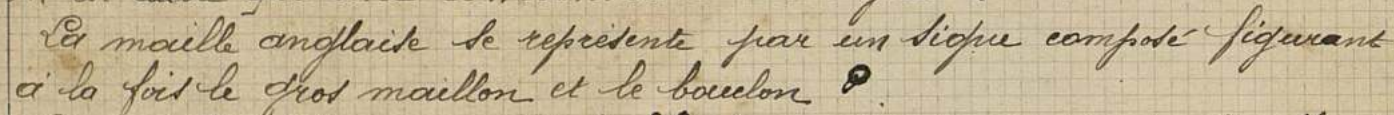 La maille anglaise se représente par un signe composé figurant
à la fois le gros maillon et le boulon